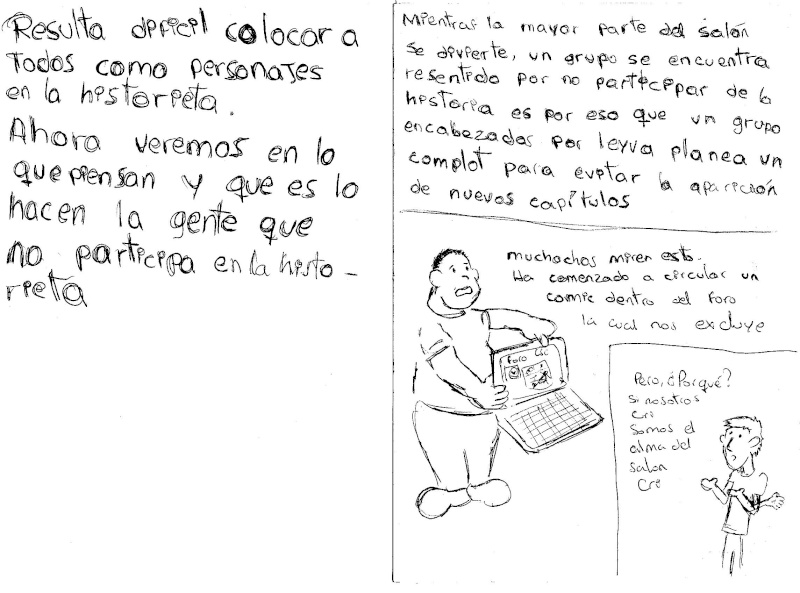 Resulta dificil colocar a
todos como personajes
en la historieta.
Ahora veremos en lo
que piensan y que es lo
hacen la gente que
no participa en la histo-
rieta
Mientras la mayor parte del salón
se divierte, un grupo se encuentra
resentido por no participar de la
historia es por eso que un grupo
encabezados por leyva planea un
complot para evitar la aparición
de nuevos capítulos
muchachos miren esto.
Ha comenzado a circular un
comic dentro del foro
la cual nos excluye
Foro
Pero, ¿Porqué?
si nosotros
cri
somos el
alma del
salon
cri